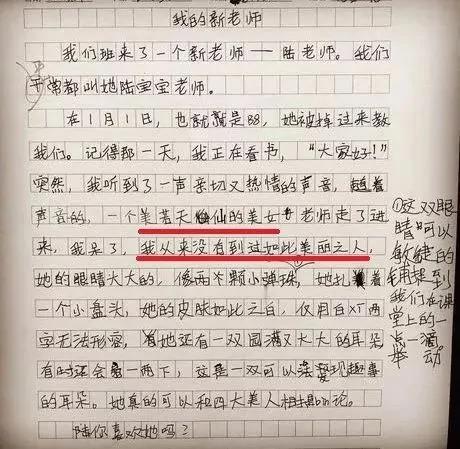 我的新老师
我们班来了一个新老师——陆老师。我们
平常都叫她陆宝宝老师。
在1月1日，也就是88，她被掉过来教
我们。记得那一天，我正在看书，“大家好！”
突然，我听到了一声亲切又热情的声音，随着
声音的，一个美若天仙的美女老师走了进
来，我呆了，我从来没有到过如此美丽之人，
她的眼睛大大的，像两颗小弹珠，她扎着
一个小盘头，她的皮肤如此之白，仅用白对两
字无法形容，有她还有一双园满又大大的耳朵
有时还会一两下，这是一双可以发现趣事
的耳朵。她真的可以和四大美人相提bin论。
陆你喜欢她吗？
①这双眼
睛可以
敏捷的
捕捉到
我们在课
堂上的一
点一滴
举动